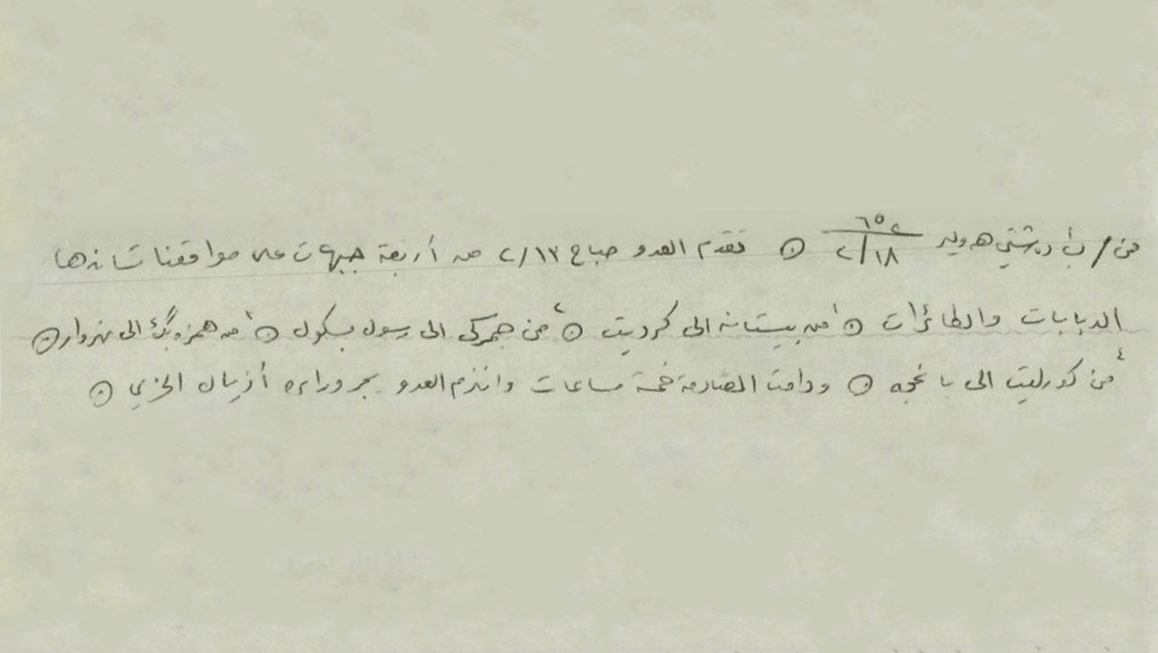 من / ب أ دهشتي هه‌ولير ٦٥٢ ٢/١٨ ⊙ تقدم العدو صباح ٢/١٧ من أربعة جبهات على مواقعنا تساندها
الدبابات والطائرات ⊙ ١ من بيستانه الى كرديت ⊙ ٢ من جمركى الى رسول بسكول ⊙ ١ من همزه بگ الى نهروار ⊙
٤ من كورليت الى باغجه ⊙ ودامت المصادمة خمسة ساعات وانهزم العدو يجر وراءه أذيال الخزي ⊙